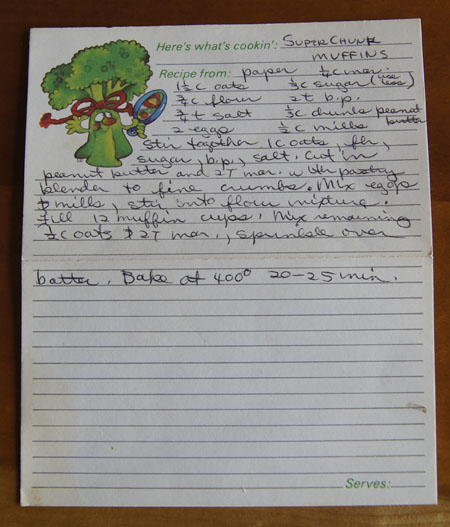 Here's what's cookin': SUPERCHUNK
MUFFINS
Recipe from: paper ¼ c mar.
1½ c oats ⅓ c sugar (use less)
¾ c flour 2 t b.p.
¾ t salt ⅓ c chunk peanut butter
2 eggs ½ c milk
Stir together 1 c oats, flr,
sugar, b.p., salt. Cut in
peanut butter and 2T mar. with pastry
blender to fine crumbs. Mix eggs
& milk, stir into flour mixture.
Fill 12 muffin cups. Mix remaining
½ c oats & 2T mar., sprinkle over
batter. Bake at 400° 20-25 min.
Serves: